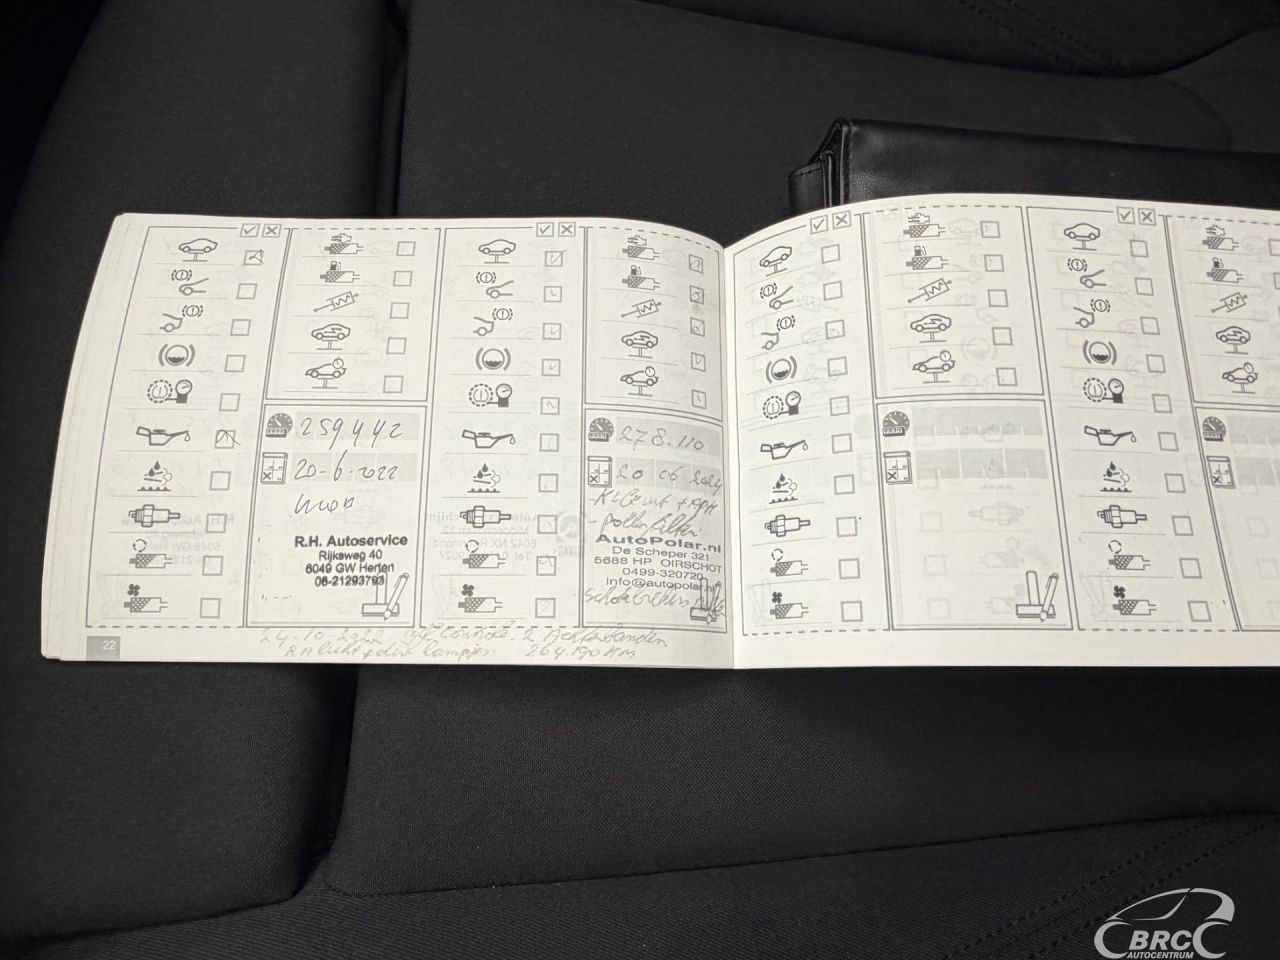 259442
20-6-2022
R.H. Autoservice
Rijksweg 40
6049 GW Herten
06-21293793
278.110
20 06 2024
+ APK
- pollenfilter
AutoPolar.nl
De Scheper 321
5688 HP OIRSCHOT
0499-320720
info@autopolar.nl
24-10-2022 2 Achterbanden
RA licht + div lampjes 264.190 KM
22
BRC
AUTOCENTRUM